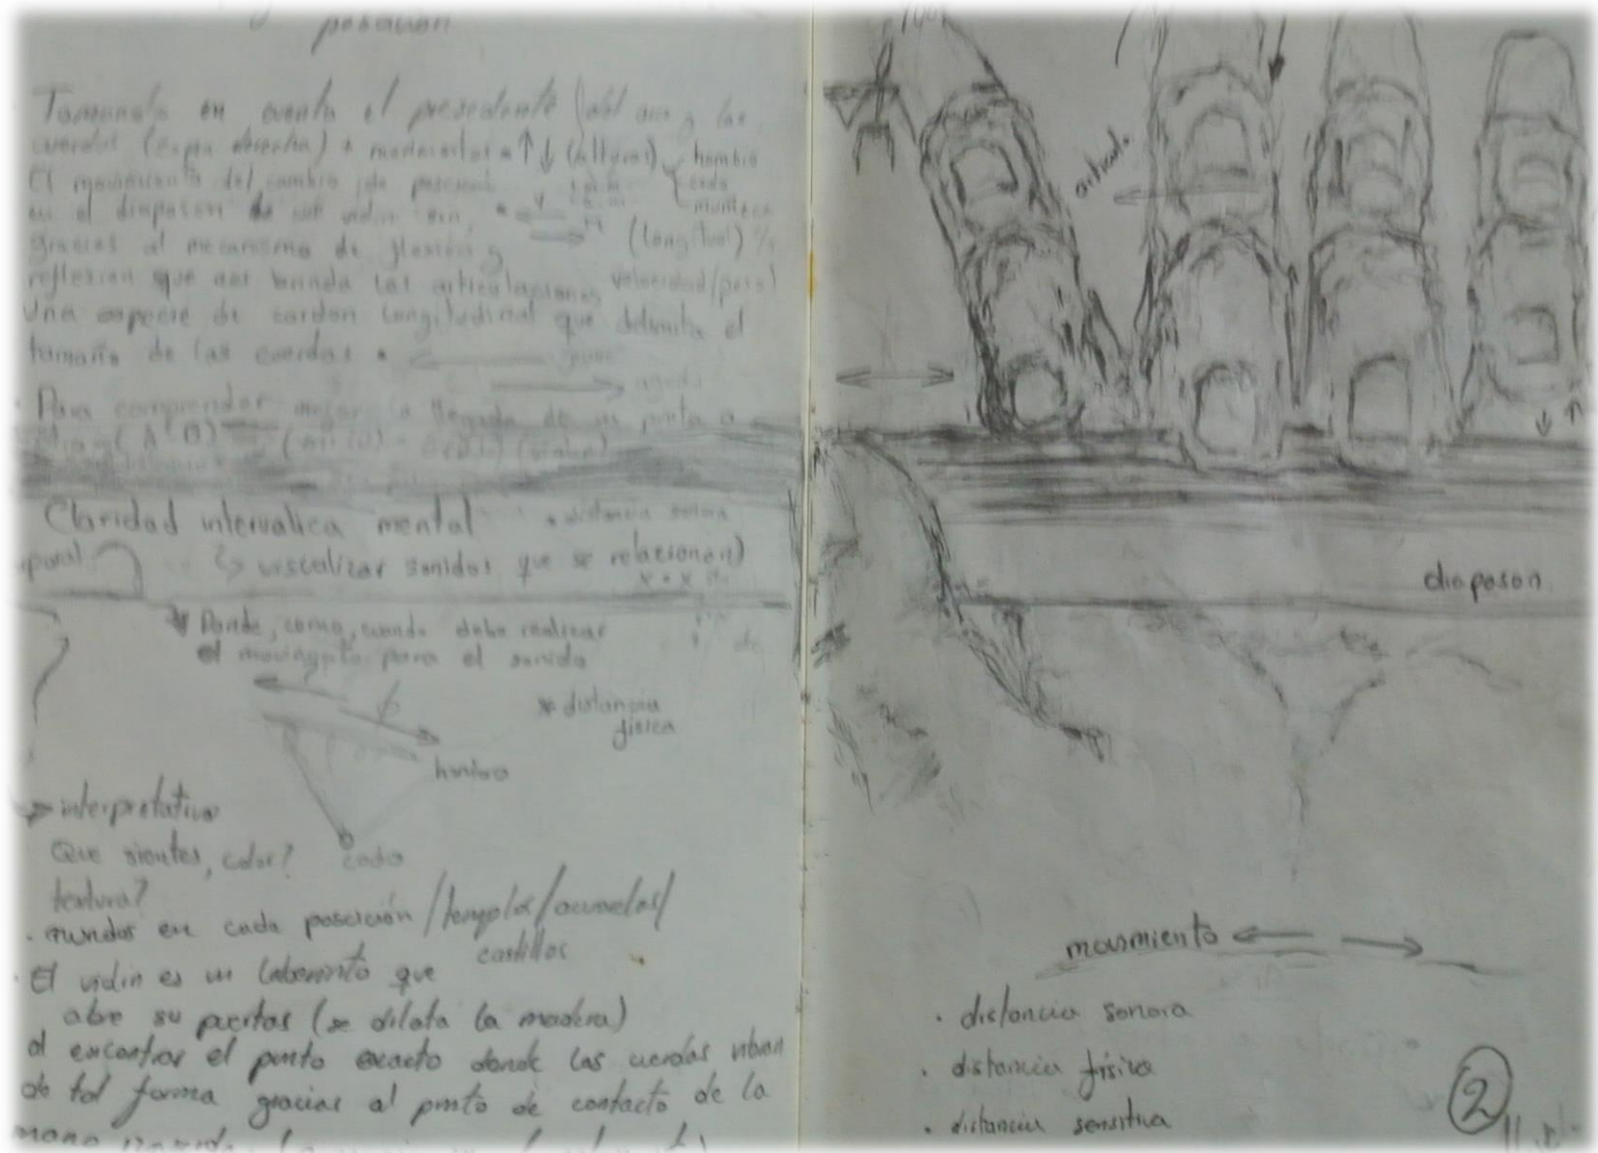 posición
Tomando en cuenta el presedente (del arco y las
cuerdas ( derecha) ↑↓ (Alturas) hombro
codo
muñeca
El movimiento del cambio de posición
en el diapason de un violin son,
(longitud)
gracias al mecanismo de flexión y
reflexion que nos brinda las articulaciones velocidad/peso)
Una especie de cordon longitudinal que delimita el
tamaño de las cuerdas • ← grave
→ agudo
• Para comprender mejor la llegada de un punto a
(A B)
Claridad intervalica mental • distancia sonora
↳ visualizar sonidos que se relacionan)
poral
Donde, como, cuando debo realizar
el movimiento para el sonido
* distancia
fisica
hombro
codo
→ interpretativo
Que sientes, color?
textura?
• mundos en cada posición /templos/acuarelas/
castillos
• El violin es un laberinto que
abre su puertas (se dilata la madera)
al encontrar el punto exacto donde las cuerdas vibran
de tal forma gracias al punto de contacto de la
mano
articula.
diapason
movimiento ← →
• distancia sonora
• distancia física
• distancia sensitiva
2